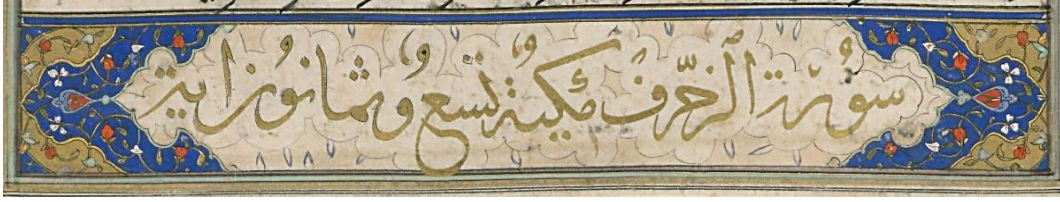 سُورَة الزّخرفُ مكيّةٌ تسع وُثمانوُن اية